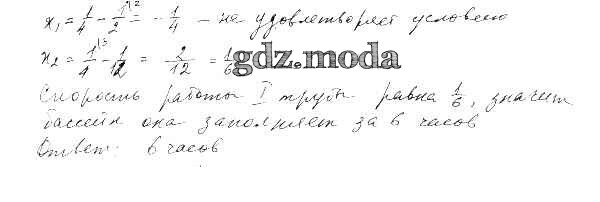 x₁ = 1/4 - 1/2 = - 1/4 - не удовлетворяет условию
x₂ = 1/4 - 1/12 = 2/12 = 1/6
gdz.moda
Скорость работы I трубы равна 1/6, значит
бассейн она заполняет за 6 часов
Ответ: 6 часов